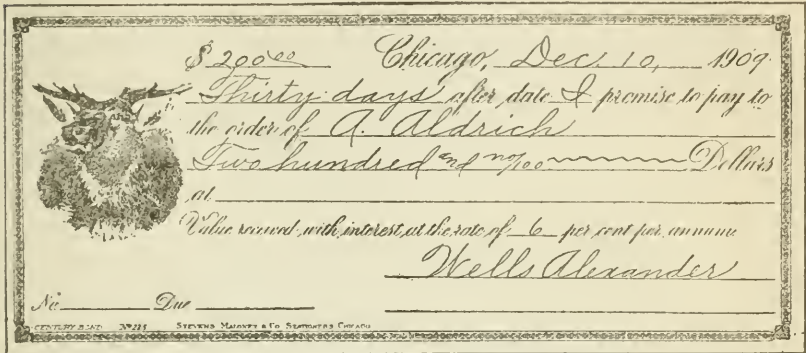 $ 200 00 Chicago, Dec. 10, 1909.
Thirty days after date I promise to pay to
the order of A. Aldrich
Two hundred and no/100 Dollars
at
Value received, with interest at the rate of 6 per cent per annum
Wells Alexander
No. Due
CENTURY BOND No 225 STEVENS MALONEY & CO STATIONERS CHICAGO